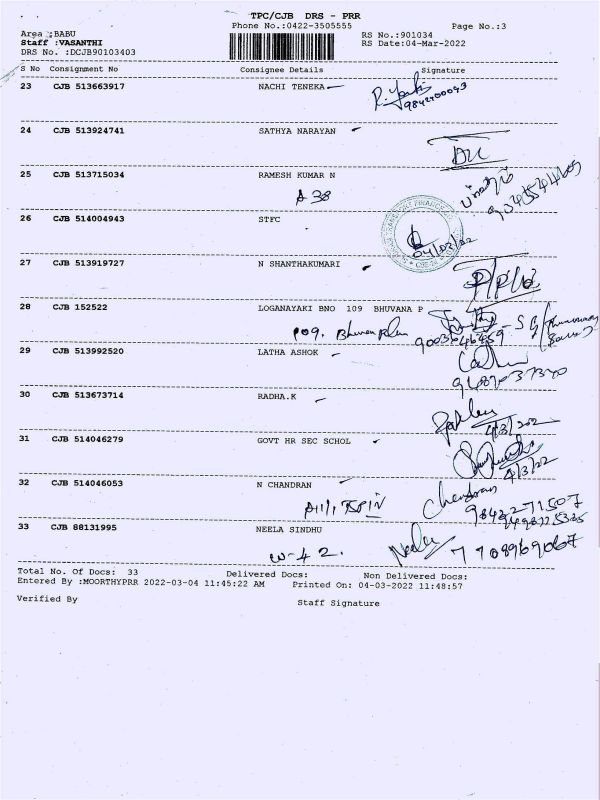 TPC/CJB DRS - PRR
Phone No.:0422-3505555 Page No.:3
Area :BABU RS No.:901034
Staff :VASANTHI RS Date:04-Mar-2022
DRS No. :DCJB90103403
S No Consignment No Consignee Details Signature
23 CJB 513663917 NACHI TENEKA
9842400043
24 CJB 513924741 SATHYA NARAYAN
25 CJB 513715034 RAMESH KUMAR N
A 38
26 CJB 514004943 STFC
04/03/22
27 CJB 513919727 N SHANTHAKUMARI
28 CJB 152522 LOGANAYAKI BNO 109 BHUVANA P
109.
29 CJB 513992520 LATHA ASHOK
30 CJB 513673714 RADHA.K
31 CJB 514046279 GOVT HR SEC SCHOL
4/3/22
32 CJB 514046053 N CHANDRAN
Chandran
9842271507
33 CJB 88131995 NEELA SINDHU
W-42. Neela 7708969067
Total No. Of Docs: 33 Delivered Docs: Non Delivered Docs:
Entered By :MOORTHYPRR 2022-03-04 11:45:22 AM Printed On: 04-03-2022 11:48:57
Verified By Staff Signature